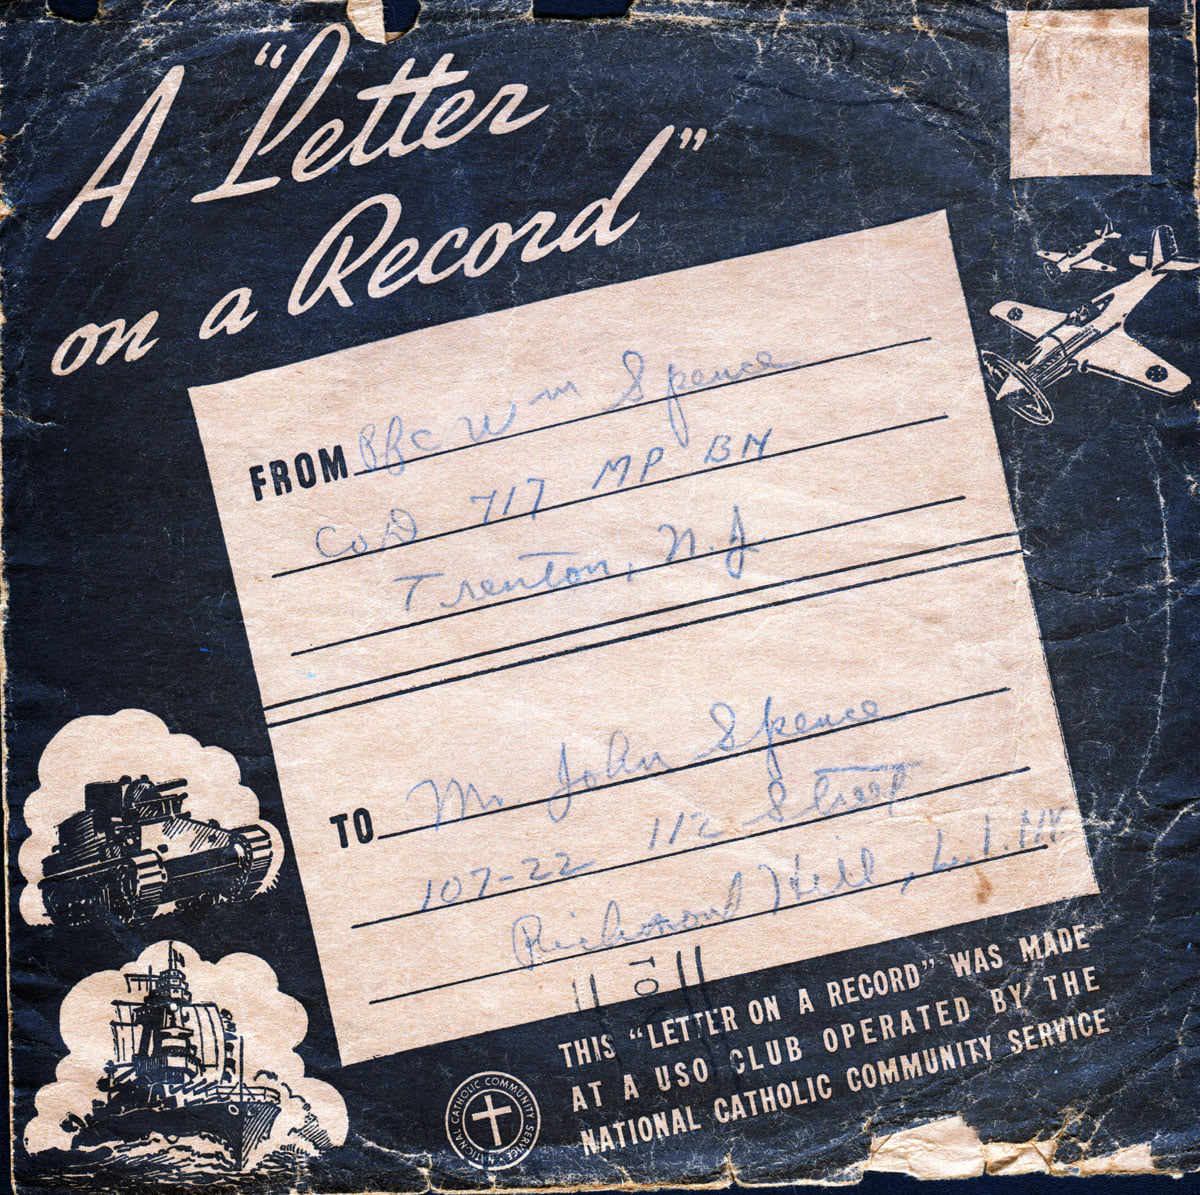 A "Letter
on a Record"
FROM Pfc Wm Spence
Co D 717 MP BN
Trenton, N.J
TO Mr John Spence
107-22 112 Street
Richmond Hill, L.I. NY
THIS "LETTER ON A RECORD" WAS MADE
AT A USO CLUB OPERATED BY THE
NATIONAL CATHOLIC COMMUNITY SERVICE
NATIONAL CATHOLIC COMMUNITY SERVICE